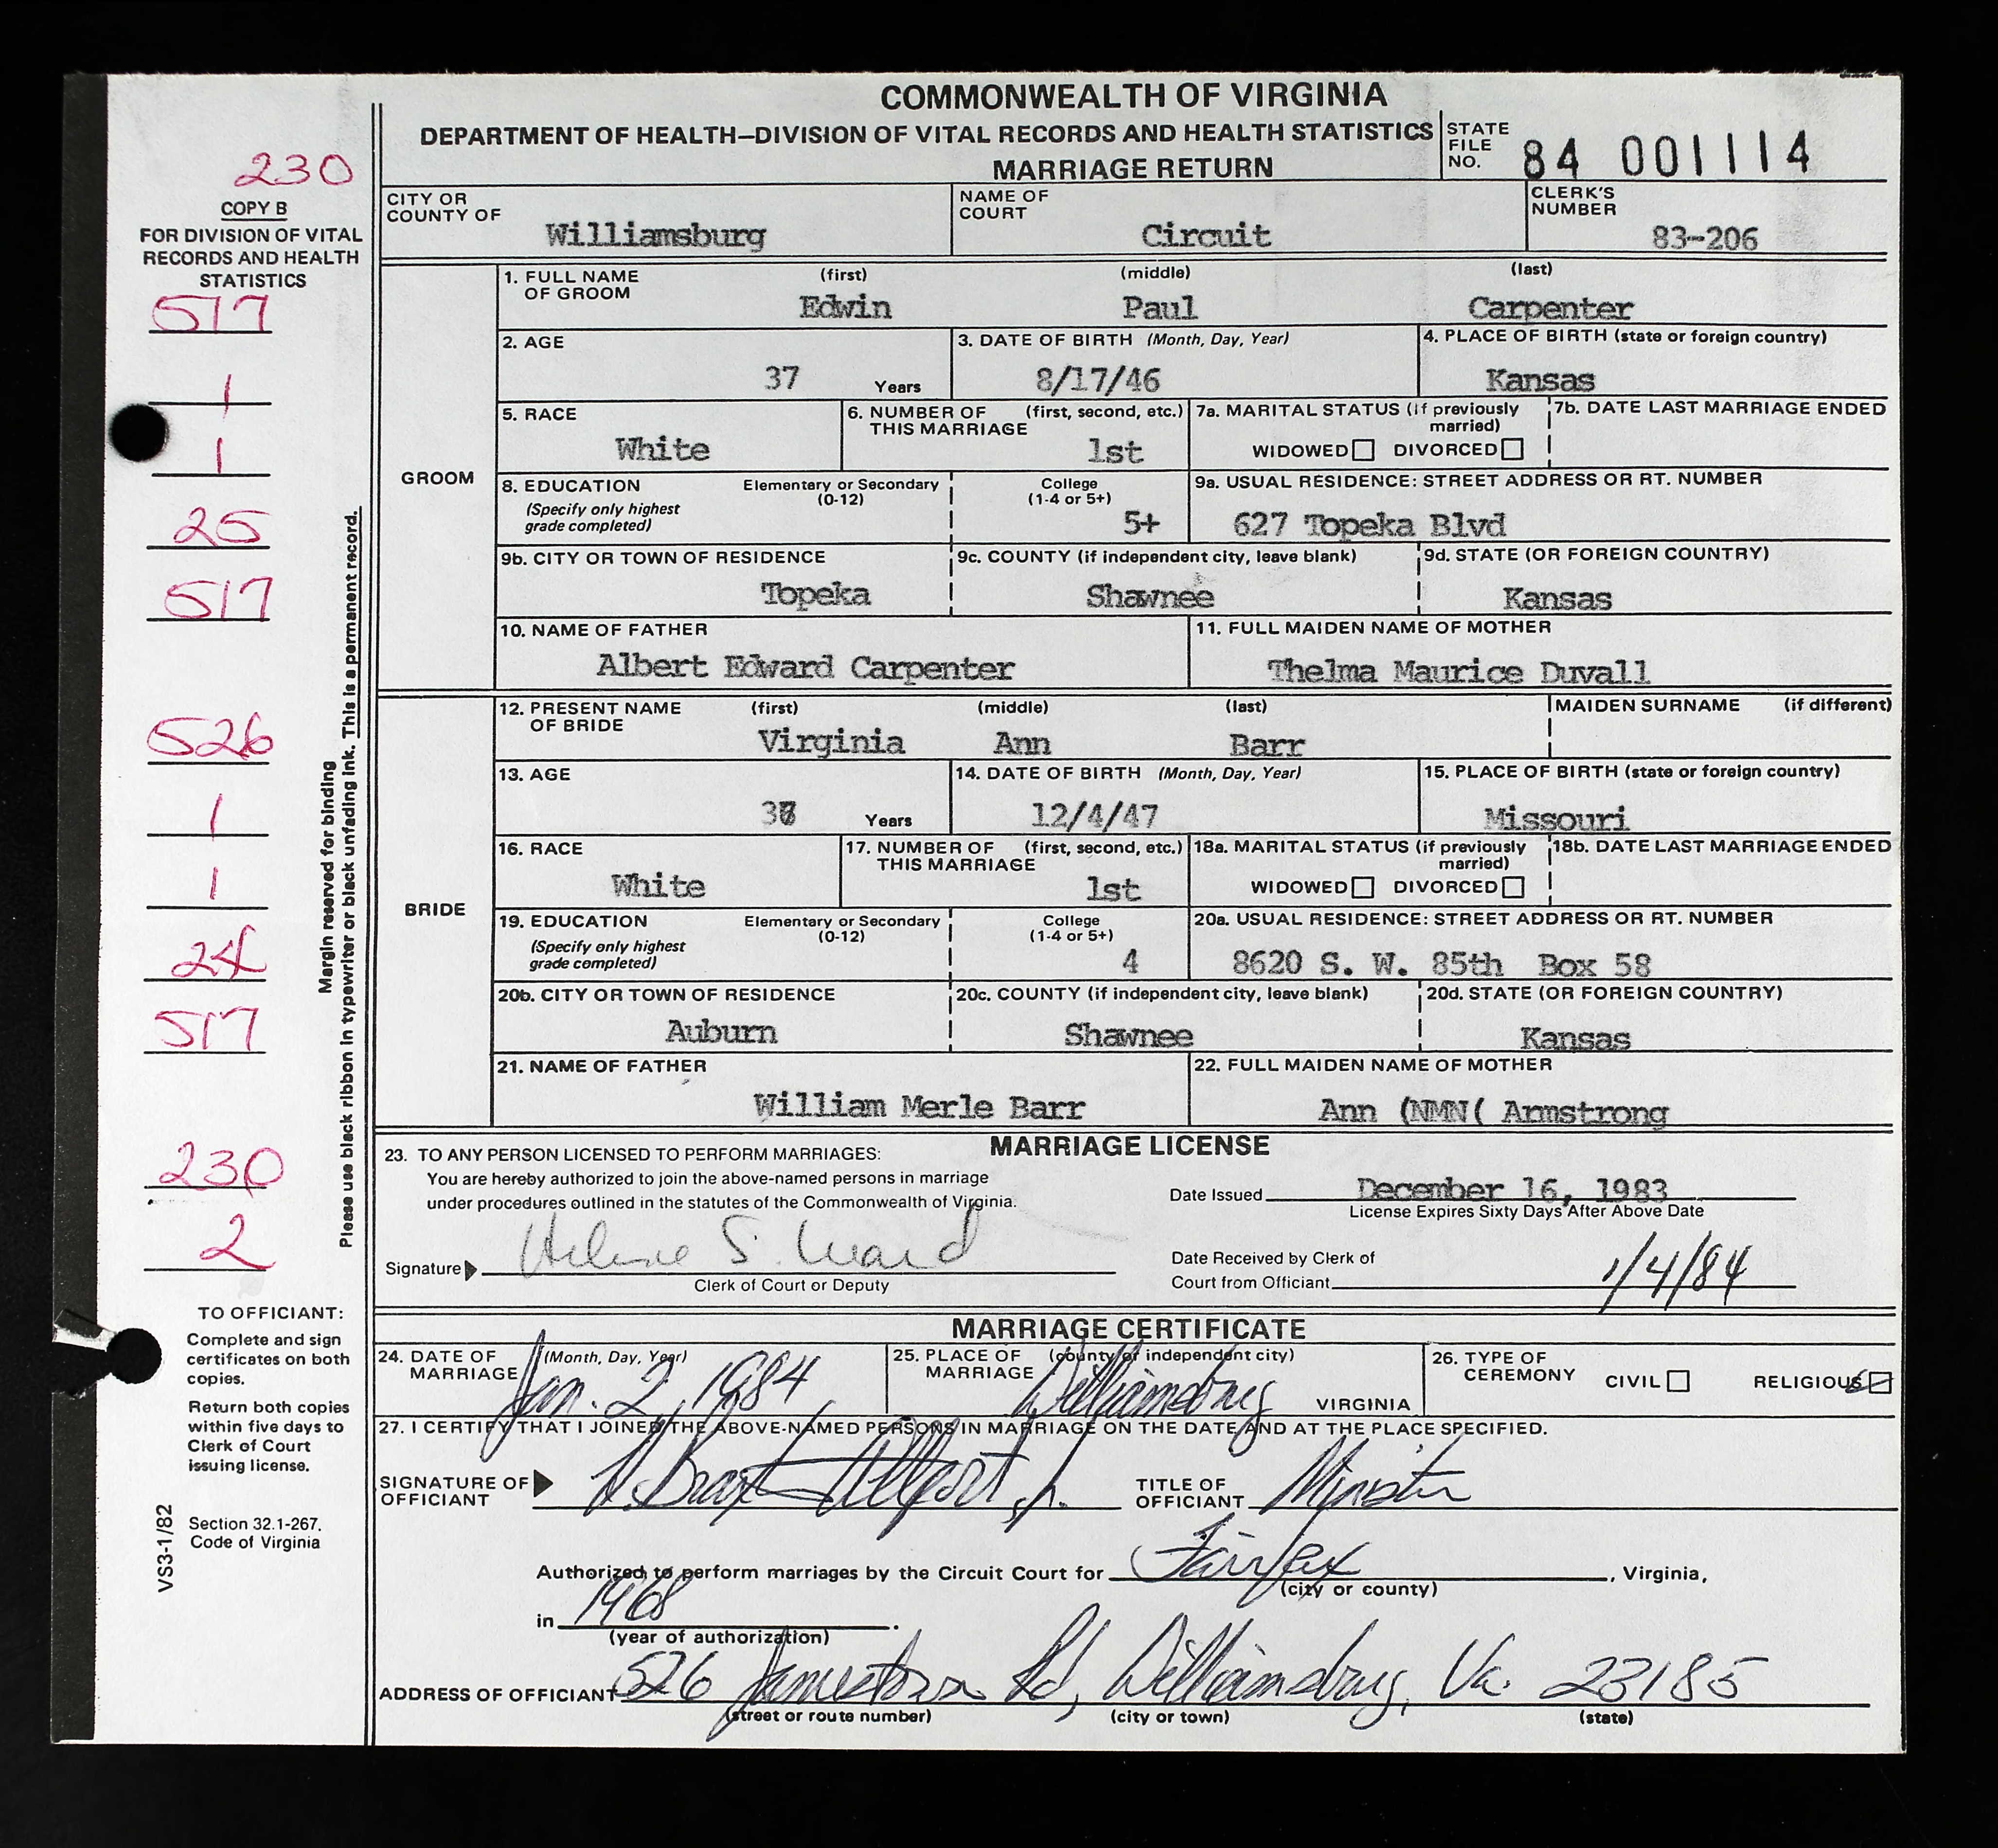 COMMONWEALTH OF VIRGINIA
DEPARTMENT OF HEALTH—DIVISION OF VITAL RECORDS AND HEALTH STATISTICS
MARRIAGE RETURN
STATE FILE NO. 84 001114
230
COPY B
FOR DIVISION OF VITAL
RECORDS AND HEALTH
STATISTICS
517
1
1
25
517
526
1
1
24
517
230
2
Margin reserved for binding
Please use black ribbon in typewriter or black unfading ink. This is a permanent record.
TO OFFICIANT:
Complete and sign
certificates on both
copies.
Return both copies
within five days to
Clerk of Court
issuing license.
Section 32.1-267,
Code of Virginia
VS3-1/82
CITY OR COUNTY OF Williamsburg
NAME OF COURT Circuit
CLERK'S NUMBER 83-206
GROOM
1. FULL NAME OF GROOM (first) Edwin (middle) Paul (last) Carpenter
2. AGE 37 Years
3. DATE OF BIRTH (Month, Day, Year) 8/17/46
4. PLACE OF BIRTH (state or foreign country) Kansas
5. RACE White
6. NUMBER OF THIS MARRIAGE (first, second, etc.) 1st
7a. MARITAL STATUS (if previously married) WIDOWED DIVORCED
7b. DATE LAST MARRIAGE ENDED
8. EDUCATION (Specify only highest grade completed) Elementary or Secondary (0-12) College (1-4 or 5+) 5+
9a. USUAL RESIDENCE: STREET ADDRESS OR RT. NUMBER 627 Topeka Blvd
9b. CITY OR TOWN OF RESIDENCE Topeka
9c. COUNTY (if independent city, leave blank) Shawnee
9d. STATE (OR FOREIGN COUNTRY) Kansas
10. NAME OF FATHER Albert Edward Carpenter
11. FULL MAIDEN NAME OF MOTHER Thelma Maurice Duvall
BRIDE
12. PRESENT NAME OF BRIDE (first) Virginia (middle) Ann (last) Barr
MAIDEN SURNAME (if different)
13. AGE Years
14. DATE OF BIRTH (Month, Day, Year) 12/4/47
15. PLACE OF BIRTH (state or foreign country) Missouri
16. RACE White
17. NUMBER OF THIS MARRIAGE (first, second, etc.) 1st
18a. MARITAL STATUS (if previously married) WIDOWED DIVORCED
18b. DATE LAST MARRIAGE ENDED
19. EDUCATION (Specify only highest grade completed) Elementary or Secondary (0-12) College (1-4 or 5+) 4
20a. USUAL RESIDENCE: STREET ADDRESS OR RT. NUMBER 8620 S. W. 85th Box 58
20b. CITY OR TOWN OF RESIDENCE Auburn
20c. COUNTY (if independent city, leave blank) Shawnee
20d. STATE (OR FOREIGN COUNTRY) Kansas
21. NAME OF FATHER William Merle Barr
22. FULL MAIDEN NAME OF MOTHER Ann (NMN( Armstrong
MARRIAGE LICENSE
23. TO ANY PERSON LICENSED TO PERFORM MARRIAGES:
You are hereby authorized to join the above-named persons in marriage
under procedures outlined in the statutes of the Commonwealth of Virginia.
Date Issued December 16, 1983
License Expires Sixty Days After Above Date
Signature Helene S. Ward
Clerk of Court or Deputy
Date Received by Clerk of
Court from Officiant 1/4/84
MARRIAGE CERTIFICATE
24. DATE OF MARRIAGE (Month, Day, Year) Jan. 2, 1984
25. PLACE OF MARRIAGE (county or independent city) Williamsburg VIRGINIA
26. TYPE OF CEREMONY CIVIL RELIGIOUS
27. I CERTIFY THAT I JOINED THE ABOVE-NAMED PERSONS IN MARRIAGE ON THE DATE AND AT THE PLACE SPECIFIED.
SIGNATURE OF OFFICIANT
TITLE OF OFFICIANT Minister
Authorized to perform marriages by the Circuit Court for Fairfax, Virginia,
(city or county)
in 1968.
(year of authorization)
ADDRESS OF OFFICIANT 526 Jamestown Rd, Williamsburg, Va. 23185
(street or route number) (city or town) (state)